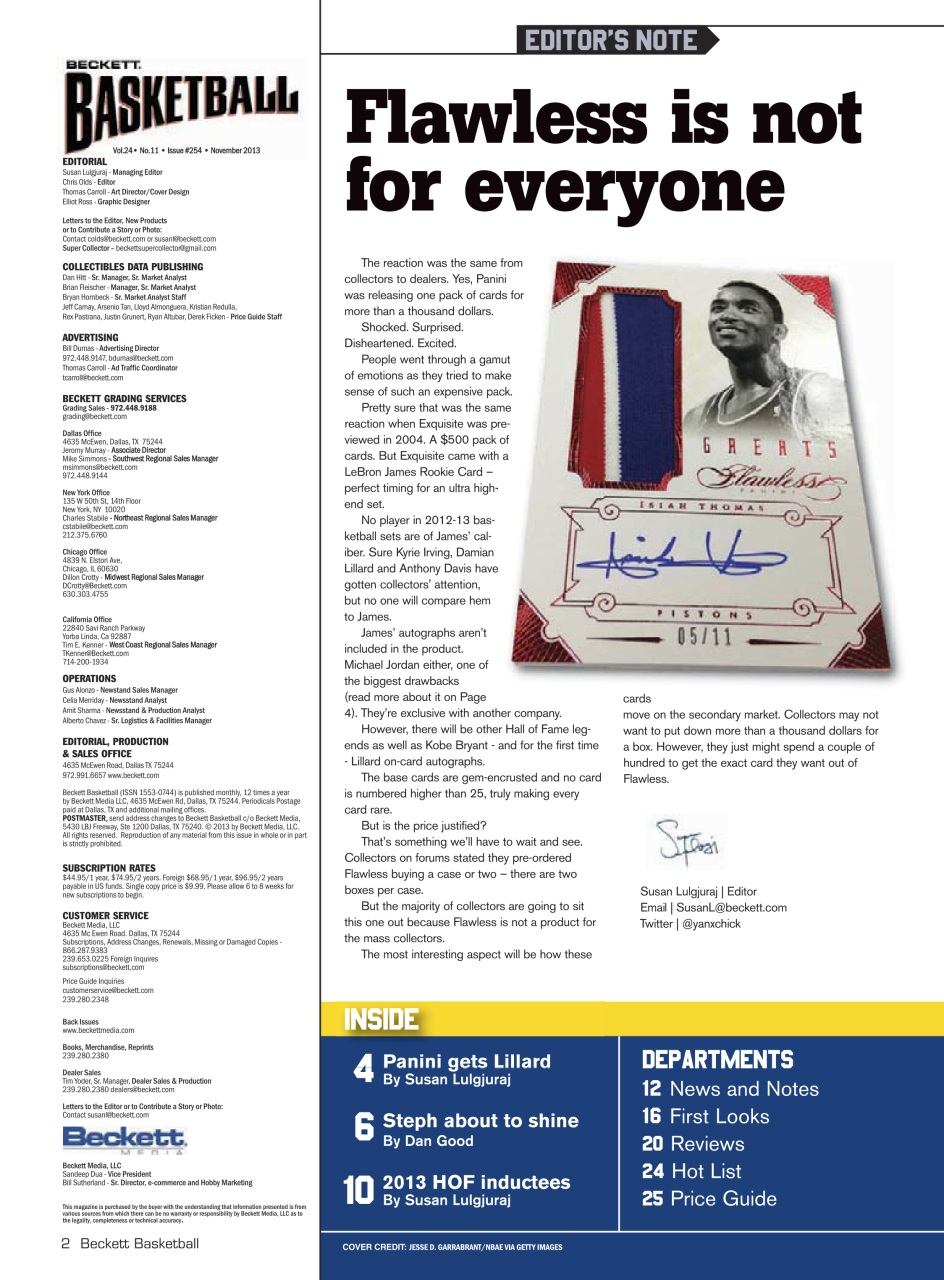 BECKETT
BASKETBALL
Vol.24 • No.11 • Issue #254 • November 2013
EDITORIAL
Susan Lulgjuraj - Managing Editor
Chris Olds - Editor
Thomas Carroll - Art Director/Cover Design
Elliot Ross - Graphic Designer
Letters to the Editor, New Products
or to Contribute a Story or Photo:
Contact colds@beckett.com or susanl@beckett.com
Super Collector – beckettsupercollector@gmail.com
COLLECTIBLES DATA PUBLISHING
Dan Hitt - Sr. Manager, Sr. Market Analyst
Brian Fleischer - Manager, Sr. Market Analyst
Bryan Hornbeck - Sr. Market Analyst Staff
Jeff Camay, Arsenio Tan, Lloyd Almonguera, Kristian Redulla,
Rex Pastrana, Justin Grunert, Ryan Altubar, Derek Ficken - Price Guide Staff
ADVERTISING
Bill Dumas - Advertising Director
972.448.9147, bdumas@beckett.com
Thomas Carroll - Ad Traffic Coordinator
tcarroll@beckett.com
BECKETT GRADING SERVICES
Grading Sales - 972.448.9188
grading@beckett.com
Dallas Office
4635 McEwen, Dallas, TX 75244
Jeromy Murray - Associate Director
Mike Simmons - Southwest Regional Sales Manager
msimmons@beckett.com
972.448.9144
New York Office
135 W 50th St, 14th Floor
New York, NY 10020
Charles Stabile - Northeast Regional Sales Manager
cstabile@beckett.com
212.375.6760
Chicago Office
4839 N. Elston Ave,
Chicago, IL 60630
Dillon Crotty - Midwest Regional Sales Manager
DCrotty@Beckett.com
630.303.4755
California Office
22840 Savi Ranch Parkway
Yorba Linda, Ca 92887
Tim E. Kenner - West Coast Regional Sales Manager
TKenner@Beckett.com
714-200-1934
OPERATIONS
Gus Alonzo - Newstand Sales Manager
Celia Merriday - Newsstand Analyst
Amit Sharma - Newsstand & Production Analyst
Alberto Chavez - Sr. Logistics & Facilities Manager
EDITORIAL, PRODUCTION
& SALES OFFICE
4635 McEwen Road, Dallas TX 75244
972.991.6657 www.beckett.com
Beckett Basketball (ISSN 1553-0744) is published monthly, 12 times a year
by Beckett Media LLC, 4635 McEwen Rd, Dallas, TX 75244. Periodicals Postage
paid at Dallas, TX and additional mailing offices.
POSTMASTER, send address changes to Beckett Basketball c/o Beckett Media,
5430 LBJ Freeway, Ste 1200 Dallas, TX 75240. © 2013 by Beckett Media, LLC.
All rights reserved. Reproduction of any material from this issue in whole or in part
is strictly prohibited.
SUBSCRIPTION RATES
$44.95/1 year, $74.95/2 years. Foreign $68.95/1 year, $96.95/2 years
payable in US funds. Single copy price is $9.99. Please allow 6 to 8 weeks for
new subscriptions to begin.
CUSTOMER SERVICE
Beckett Media, LLC
4635 Mc Ewen Road. Dallas, TX 75244
Subscriptions, Address Changes, Renewals, Missing or Damaged Copies -
866.287.9383
239.653.0225 Foreign Inquires
subscriptions@beckett.com
Price Guide Inquiries
customerservice@beckett.com
239.280.2348
Back Issues
www.beckettmedia.com
Books, Merchandise, Reprints
239.280.2380
Dealer Sales
Tim Yoder, Sr. Manager, Dealer Sales & Production
239.280.2380 dealers@beckett.com
Letters to the Editor or to Contribute a Story or Photo:
Contact susanl@beckett.com
Beckett
MEDIA
Beckett Media, LLC
Sandeep Dua - Vice President
Bill Sutherland - Sr. Director, e-commerce and Hobby Marketing
This magazine is purchased by the buyer with the understanding that information presented is from
various sources from which there can be no warranty or responsibility by Beckett Media, LLC as to
the legality, completeness or technical accuracy.
2 Beckett Basketball
EDITOR'S NOTE
Flawless is not
for everyone
The reaction was the same from
collectors to dealers. Yes, Panini
was releasing one pack of cards for
more than a thousand dollars.
Shocked. Surprised.
Disheartened. Excited.
People went through a gamut
of emotions as they tried to make
sense of such an expensive pack.
Pretty sure that was the same
reaction when Exquisite was pre-
viewed in 2004. A $500 pack of
cards. But Exquisite came with a
LeBron James Rookie Card –
perfect timing for an ultra high-
end set.
No player in 2012-13 bas-
ketball sets are of James' cal-
iber. Sure Kyrie Irving, Damian
Lillard and Anthony Davis have
gotten collectors' attention,
but no one will compare hem
to James.
James' autographs aren't
included in the product.
Michael Jordan either, one of
the biggest drawbacks
(read more about it on Page
4). They're exclusive with another company.
However, there will be other Hall of Fame leg-
ends as well as Kobe Bryant - and for the first time
- Lillard on-card autographs.
The base cards are gem-encrusted and no card
is numbered higher than 25, truly making every
card rare.
But is the price justified?
That's something we'll have to wait and see.
Collectors on forums stated they pre-ordered
Flawless buying a case or two – there are two
boxes per case.
But the majority of collectors are going to sit
this one out because Flawless is not a product for
the mass collectors.
The most interesting aspect will be how these
GREATS
Flawless
PANINI
ISIAH THOMAS
PISTONS
05/11
cards
move on the secondary market. Collectors may not
want to put down more than a thousand dollars for
a box. However, they just might spend a couple of
hundred to get the exact card they want out of
Flawless.
Susan Lulgjuraj | Editor
Email | SusanL@beckett.com
Twitter | @yanxchick
INSIDE
4 Panini gets Lillard
By Susan Lulgjuraj
6 Steph about to shine
By Dan Good
10 2013 HOF inductees
By Susan Lulgjuraj
DEPARTMENTS
12 News and Notes
16 First Looks
20 Reviews
24 Hot List
25 Price Guide
COVER CREDIT: JESSE D. GARRABRANT/NBAE VIA GETTY IMAGES